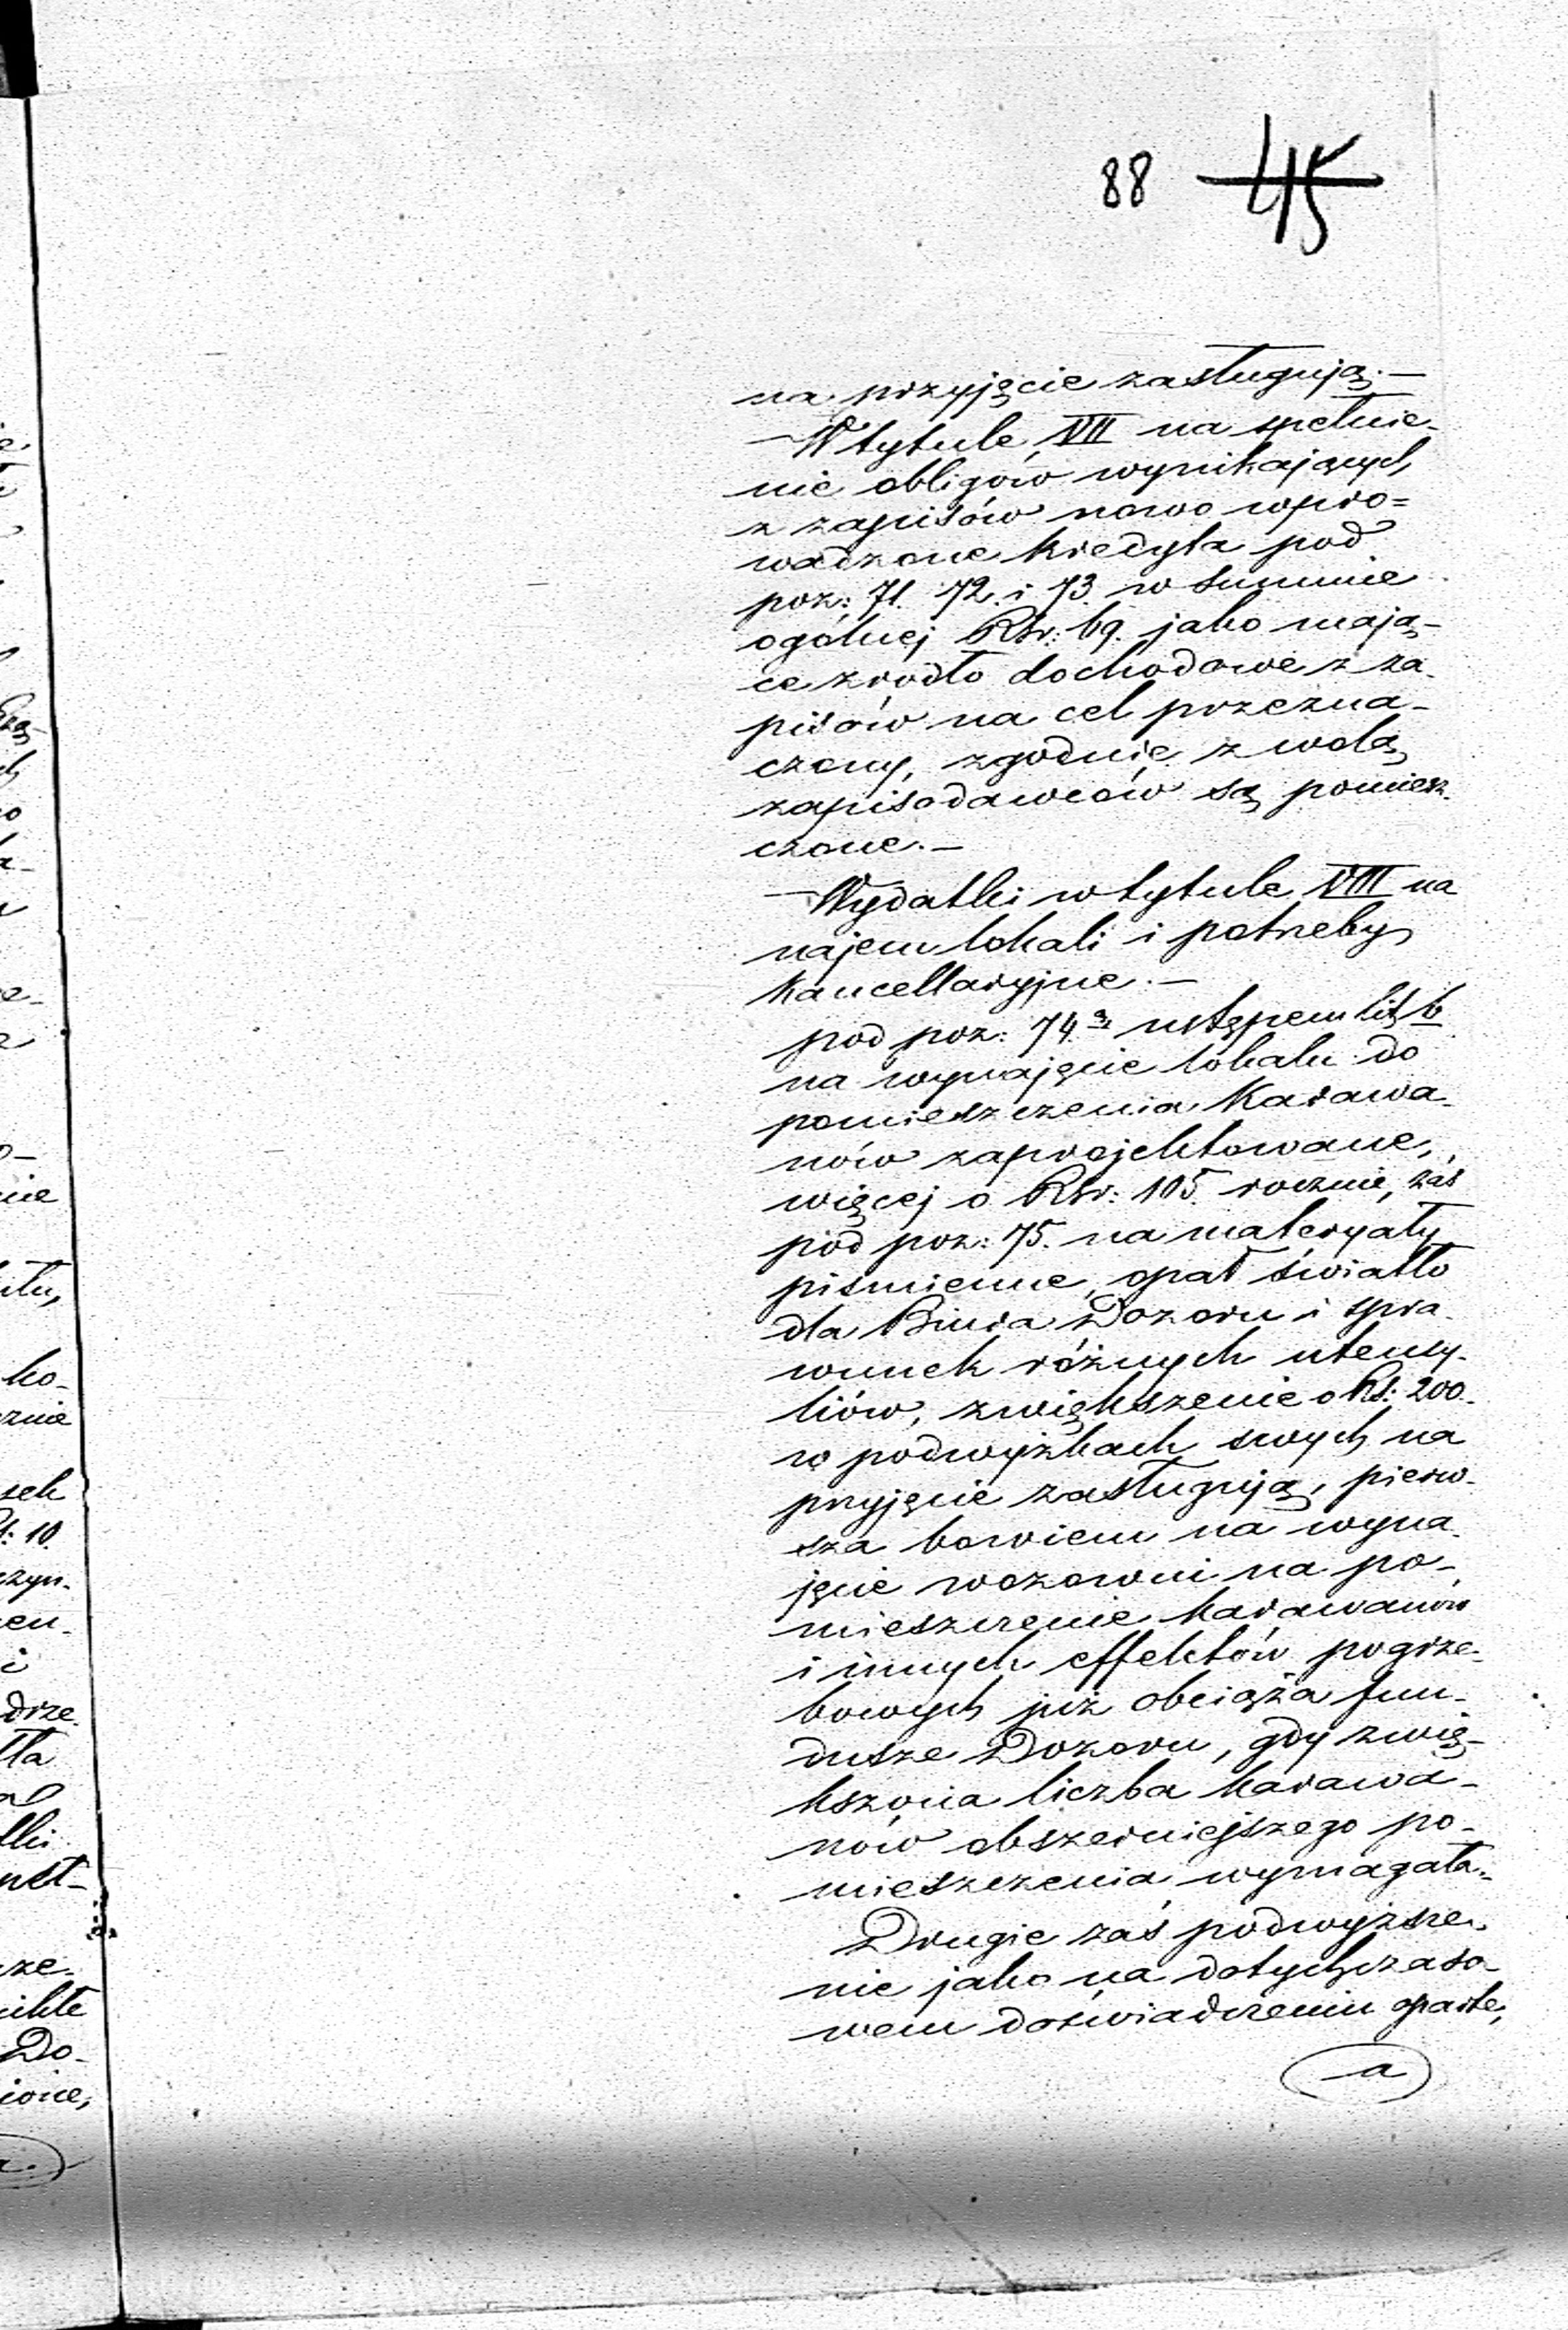 88 45
na przyjęcie zasługują.—
—W tytule VII na spełnie-
nie obligów wynikających
z zapisów nowo wpro=
wadzone kredyta pod
poz: 71. 72. i 73. w summie
ogólnej Rsr: 69. jako mają-
ce zrodło dochodowe z za-
pisów na cel przezna-
czony, zgodnie z wolą
zapisodawców są pomiesz-
czone.—
—Wydatki w tytule VIII na
najem lokali i potrzeby
Kancellaryjne.—
pod poz: 74.ą ustępem lit b
na wynajęcie lokalu do
pomieszczenia Karawa-
nów zaprojektowane,
więcej o Rsr: 105. rocznie, zaś
pod poz: 75. na materyały
piśmienne, opał światło
dla Biura Dozoru i spra-
wunek różnych utensy-
liów, zwiększenie o Rs: 200.
w podwyżkach swych na
przyjęcie zasługują, pierw-
sza bowiem na wyna-
jęcie wozowni na po-
mieszczenie karawanów
i innych effektów pogrze-
bowych już obciąża fun-
dusze Dozoru, gdy zwię-
kszona liczba karawa-
nów obszerniejszego po-
mieszczenia wymagała.
Drugie zaś podwyższe-
nie jako na dotychczaso-
wem doświadczeniu oparte,
a
ko-
cznie
Rs: 10.
Do-